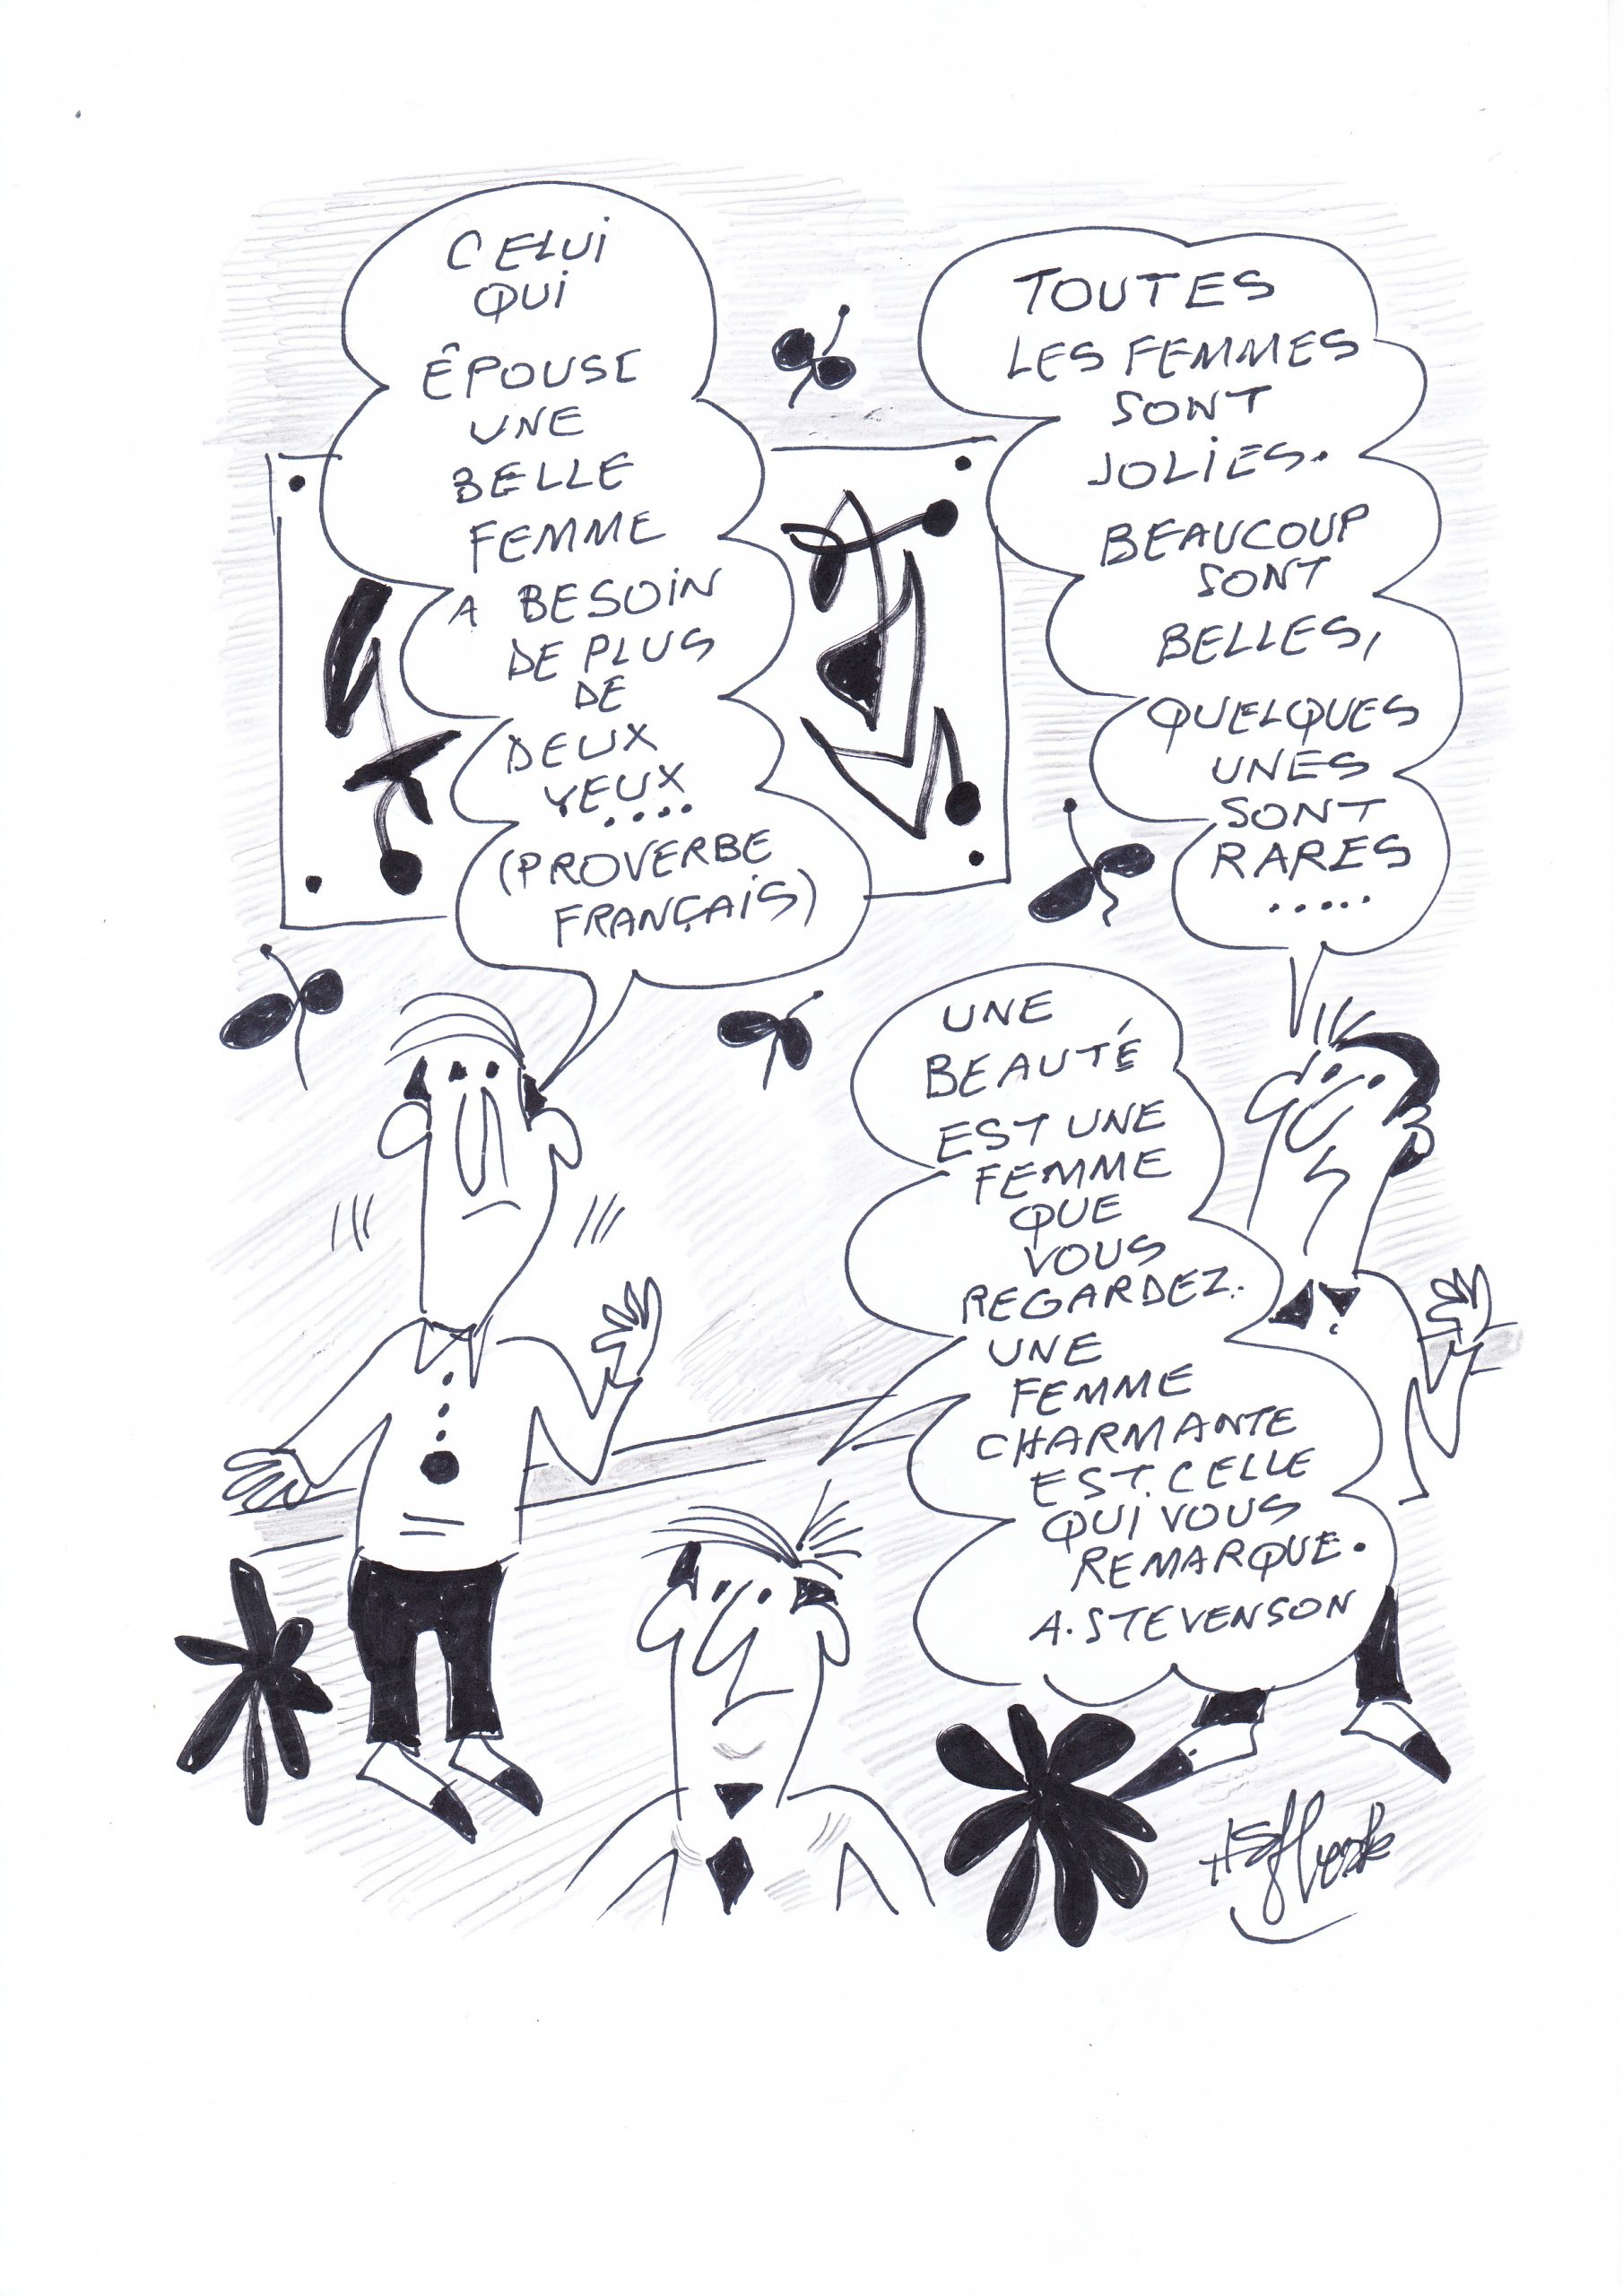 CELUI
QUI
ÊPOUSE
UNE
BELLE
FEMME
A BESOIN
DE PLUS
DE
DEUX
YEUX....
(PROVERBE
FRANÇAIS)
TOUTES
LES FEMMES
SONT
JOLIES.
BEAUCOUP
SONT
BELLES,
QUELQUES
UNES
SONT
RARES
.....
UNE
BEAUTÉ
EST UNE
FEMME
QUE
VOUS
REGARDEZ.
UNE
FEMME
CHARMANTE
EST CELLE
QUI VOUS
REMARQUE.
A. STEVENSON